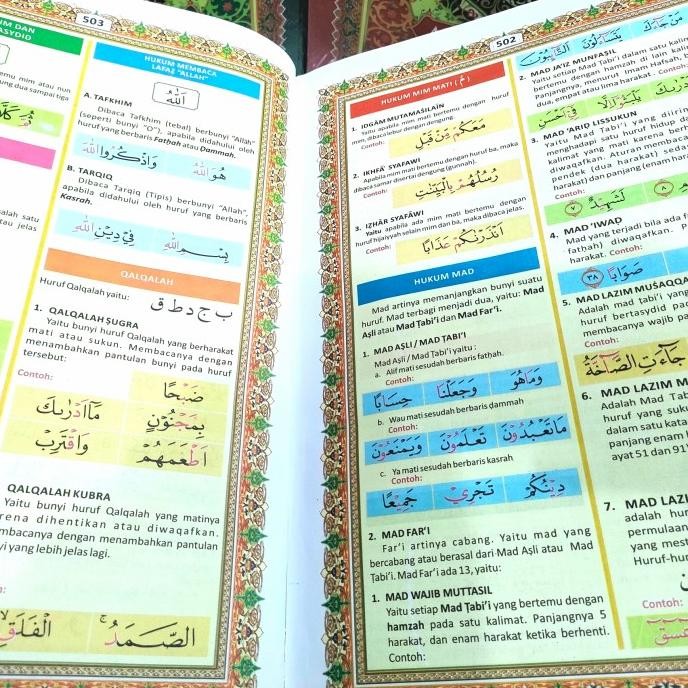 503
M DAN
ASYDID
emu mim atau nun
HUKUM MEMBACA
LAFAZ "ALLAH"
الله
A. TAFKHIM
Dibaca Tafkhim (tebal) berbunyi "Allah"
(seperti bunyi "O"), apabila didahului oleh
huruf yang berbaris Fathah atau Dammah.
هُوَ اللهُ وَاذْكُرُوا اللهَ
B. TARQIQ
Dibaca Tarqiq (Tipis) berbunyi "Allah",
apabila didahului oleh huruf yang berbaris
Kasrah.
بِسْمِ اللهِ فِيْ دِيْنِ اللهِ
QALQALAH
Huruf Qalqalah yaitu: ب ج د ط ق
1. QALQALAH ṢUGRA
Yaitu bunyi huruf Qalqalah yang berharakat
mati atau sukun. Membacanya dengan
menambahkan pantulan bunyi pada huruf
tersebut:
Contoh:
صَبْحًا
بِمَجْنُوْنٍ مَآ اَدْرٰىكَ
اَطْعَمَهُمْ وَاقْتَرِبْ
QALQALAH KUBRA
Yaitu bunyi huruf Qalqalah yang matinya
rena dihentikan atau diwaqafkan.
mbacanya dengan menambahkan pantulan
yi yang lebih jelas lagi.
الصَّمَدُ الْفَلَقِ
502
HUKUM MIM MATI ( مْ )
1. IDGĀM MUTAMAṠILAIN
Yaitu apabila mim mati bertemu dengan huruf
mim, dibaca lebur dengan dengung.
Contoh:
مَعَكُمْ مِّنْ قَبْلِ
2. IKHFĀ' SYAFAWI
Apabila mim mati bertemu dengan huruf ba, maka
dibaca samar disertai dengung (gunnah).
Contoh:
رُسُلُهُمْ بِالْبَيِّنٰتِ
3. IẒHĀR SYAFĀWI
Yaitu apabila ada mim mati bertemu dengan
huruf hijaiyyah selain mim dan ba, maka dibaca jelas.
Contoh:
اَنْذَرْنٰكُمْ عَذَابًا
HUKUM MAD
Mad artinya memanjangkan bunyi suatu
huruf. Mad terbagi menjadi dua, yaitu: Mad
Aşli atau Mad Ṭabi'i dan Mad Far'i.
1. MAD AŞLI / MAD ṬABI'I
Mad Aşli / Mad Ṭabi'i yaitu :
a. Alif mati sesudah berbaris fathah.
Contoh:
وَمَاهُوَ وَجَعَلْنَا حِسَابًا
b. Wau mati sesudah berbaris ḍammah
Contoh:
مَاتَعْبُدُوْنَ تَعْلَمُوْنَ وَيَمْنَعُوْنَ
c. Ya mati sesudah berbaris kasrah
Contoh:
دِيْنُكُمْ تَجْرِيْ جَمِيْعًا
2. MAD FAR'I
Far'i artinya cabang. Yaitu mad yang
bercabang atau berasal dari Mad Aşli atau Mad
Ṭabi'i. Mad Far'i ada 13, yaitu:
1. MAD WAJIB MUTTASIL
Yaitu setiap Mad Ṭabi'i yang bertemu dengan
hamzah pada satu kalimat. Panjangnya 5
harakat, dan enam harakat ketika berhenti.
Contoh:
2. MAD JA'IZ MUNFASIL
Yaitu setiap Mad Ṭabi'i dalam satu kalima
bertemu dengan hamzah di lain kalima
Panjangnya, menurut Imam Hafsah,
dua, empat atau lima harakat. Contoh:
3. MAD 'ARIḌ LISSUKUN
Yaitu Mad Ṭabi'i yang diirin
menghadapi satu huruf hidup da
kalimat yang mati karena berh
diwaqafkan. Aturan membaca
pendek (dua harakat) sedan
harakat) dan panjang (enam hara
Contoh:
لَشَهِيْدٌ
4. MAD 'IWAḌ
Mad yang terjadi bila ada f
fathah) diwaqafkan. P
harakat. Contoh:
صَوَابًا ٣٨
5. MAD LAZIM MUṠAQQA
Adalah mad ṭabi'i yang
huruf bertasydid pac
membacanya wajib pa
جَآءَتِ الصَّآخَّةُ
6. MAD LAZIM M
Adalah Mad Ṭab
huruf yang suku
dalam satu kata
panjang enam
ayat 51 dan 91
7. MAD LAZI
adalah huru
permulaan
yang mest
Huruf-hur
Contoh: